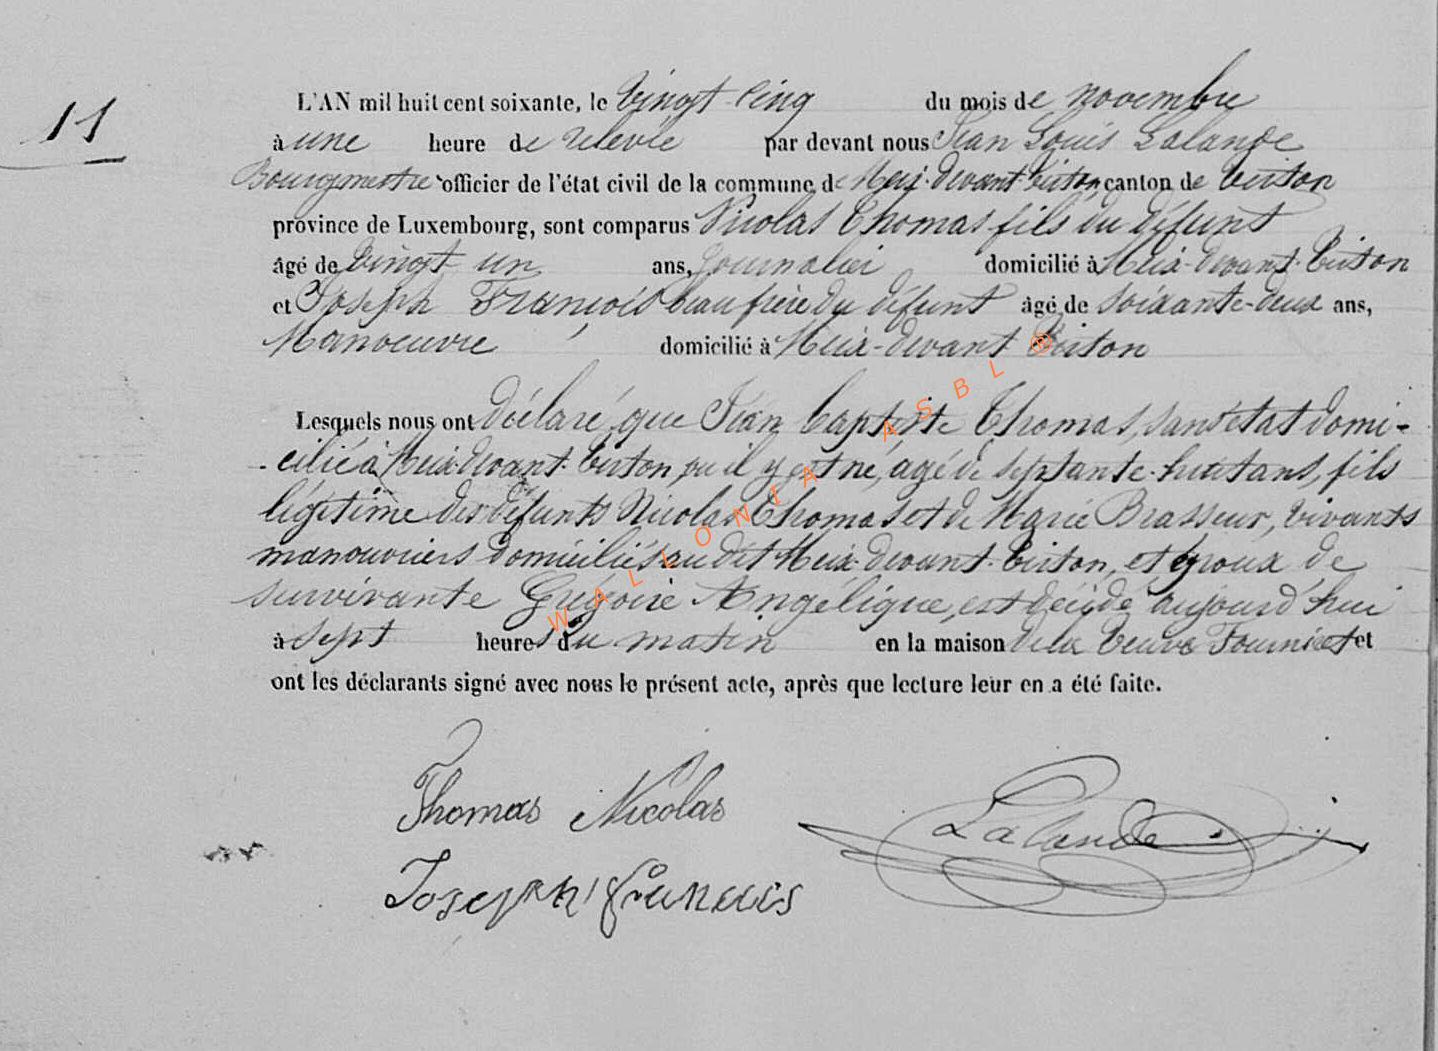 11
L'AN mil huit cent soixante, le Vingt Cinq du mois de novembre
à une heure de relevée par devant nous Jean Louis Lalande
Bourgmestre officier de l'état civil de la commune de Meix-devant-Virton, canton de Virton
province de Luxembourg, sont comparus Nicolas Thomas fils du défunt
âgé de Vingt un ans, Journalier domicilié à Meix-devant-Virton
et Joseph François beau frère du défunt âgé de soixante-deux ans,
Manoeuvre domicilié à Meix-devant Virton
Lesquels nous ont déclaré, que Jean Baptiste Thomas, sans état domi-
-cilié à Meix-devant-Virton, où il y est né, agé de septante-huit ans, fils
légitime des défunts Nicolas Thomas et de Marie Brasseur, vivants
manouvriers domiciliés au dit Meix-devant-Virton, et époux de
survivante Grégoire Angélique, est décédé aujourd'hui
à sept heures du matin en la maison de la Veuve Fournier et
ont les déclarants signé avec nous le présent acte, après que lecture leur en a été faite.
Thomas Nicolas
Lalande
Joseph françois
WALLONIA ASBL ®